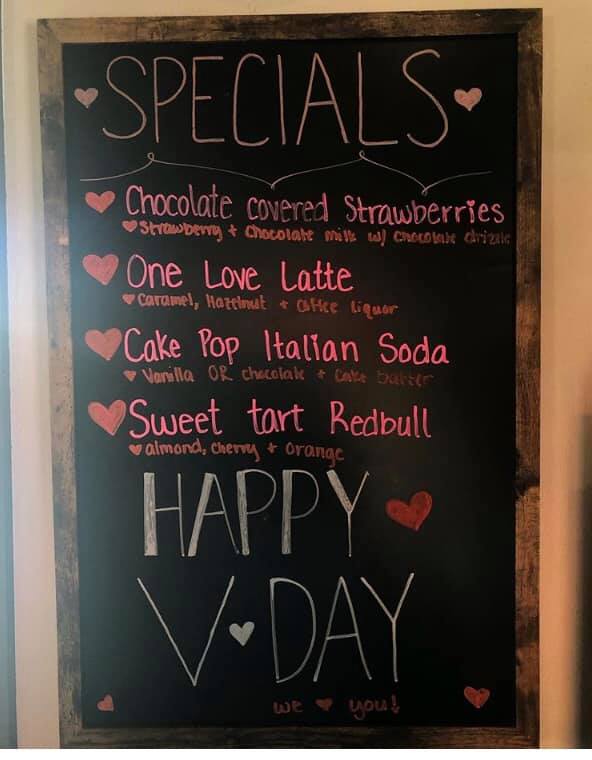 SPECIALS
Chocolate covered Strawberries
Strawberry + Chocolate milk w/ Chocolate drizzle
One Love Latte
Caramel, Hazelnut + Coffee Liquor
Cake Pop Italian Soda
Vanilla OR chocolate + Cake batter
Sweet tart Redbull
almond, cherry + Orange
HAPPY
V DAY
we ♥ you!